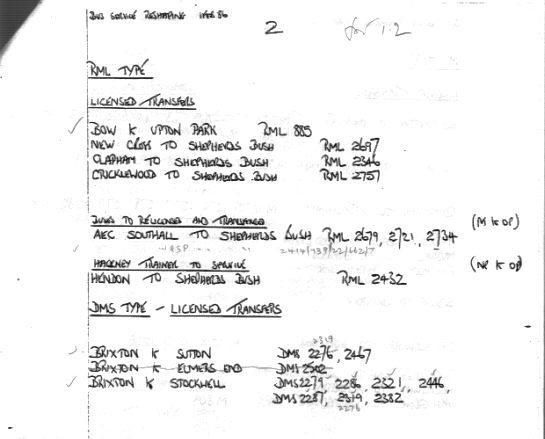 BUS SERVICE RESHAPING WEEK 86
2 for 1.2
RML TYPE
LICENSED TRANSFERS
✓ BOW to UPTON PARK RML 885
NEW CROSS TO SHEPHERDS BUSH RML 2697
CLAPHAM TO SHEPHERDS BUSH RML 2346
CRICKLEWOOD TO SHEPHERDS BUSH RML 2757
BUSES TO RELICENSE AND TRANSFER (M to OP)
AEC SOUTHALL TO SHEPHERDS BUSH RML 2679, 2721, 2734
HACKNEY TRAINER TO SERVICE (NR to OP)
HENDON TO SHEPHERDS BUSH RML 2432
DMS TYPE - LICENSED TRANSFERS
2319
✓ BRIXTON to SUTTON DMS 2276, 2467
BRIXTON to ELMERS END DMS 2502
✓ BRIXTON to STOCKWELL DMS 2279 2286, 2321, 2446,
DMS 2287, 2319, 2382
2276